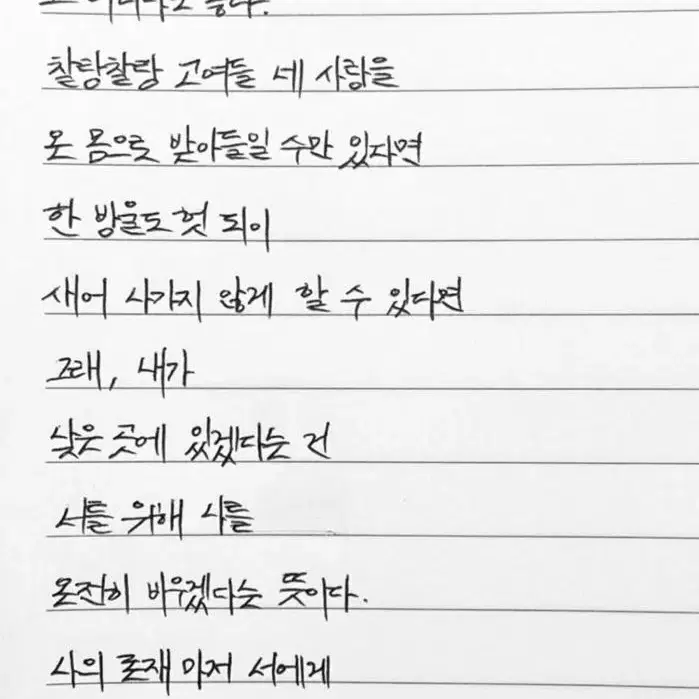 찰랑찰랑 고여들 네 사랑을
온 몸으로 받아들일 수만 있다면
한 방울도 헛 되이
새어 나가지 않게 할 수 있다면
그래, 내가
낮은 곳에 있겠다는 건
너를 위해 나를
온전히 비우겠다는 뜻이다.
나의 존재 마저 너에게